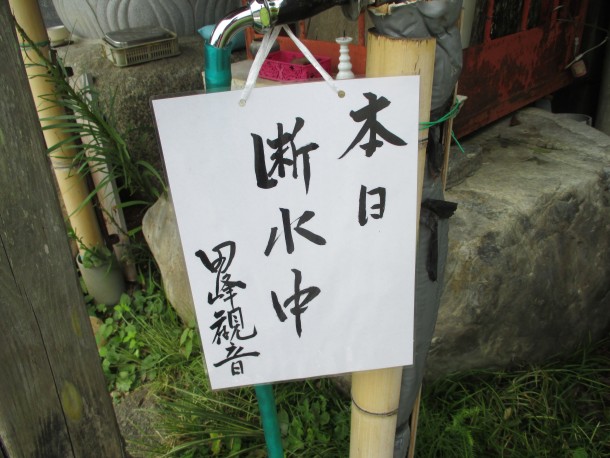 本日
断水中
田峰観音